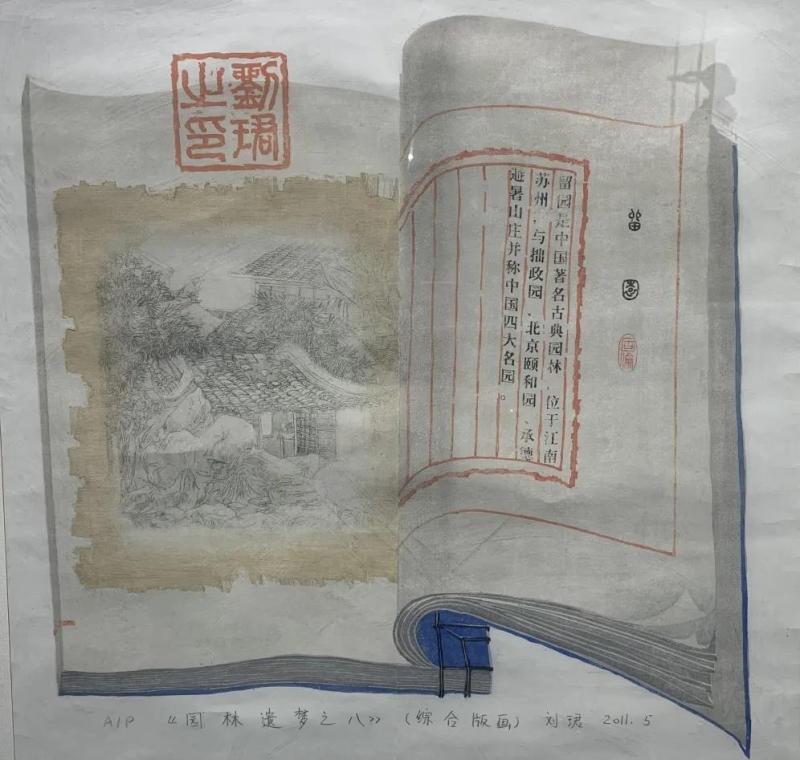 劉珺之印
留园是中国著名古典园林，位于江南
苏州，与拙政园、北京颐和园、承德
避暑山庄并称中国四大名园。
留園
A/P 《园林遗梦之八》（综合版画）刘珺 2011.5